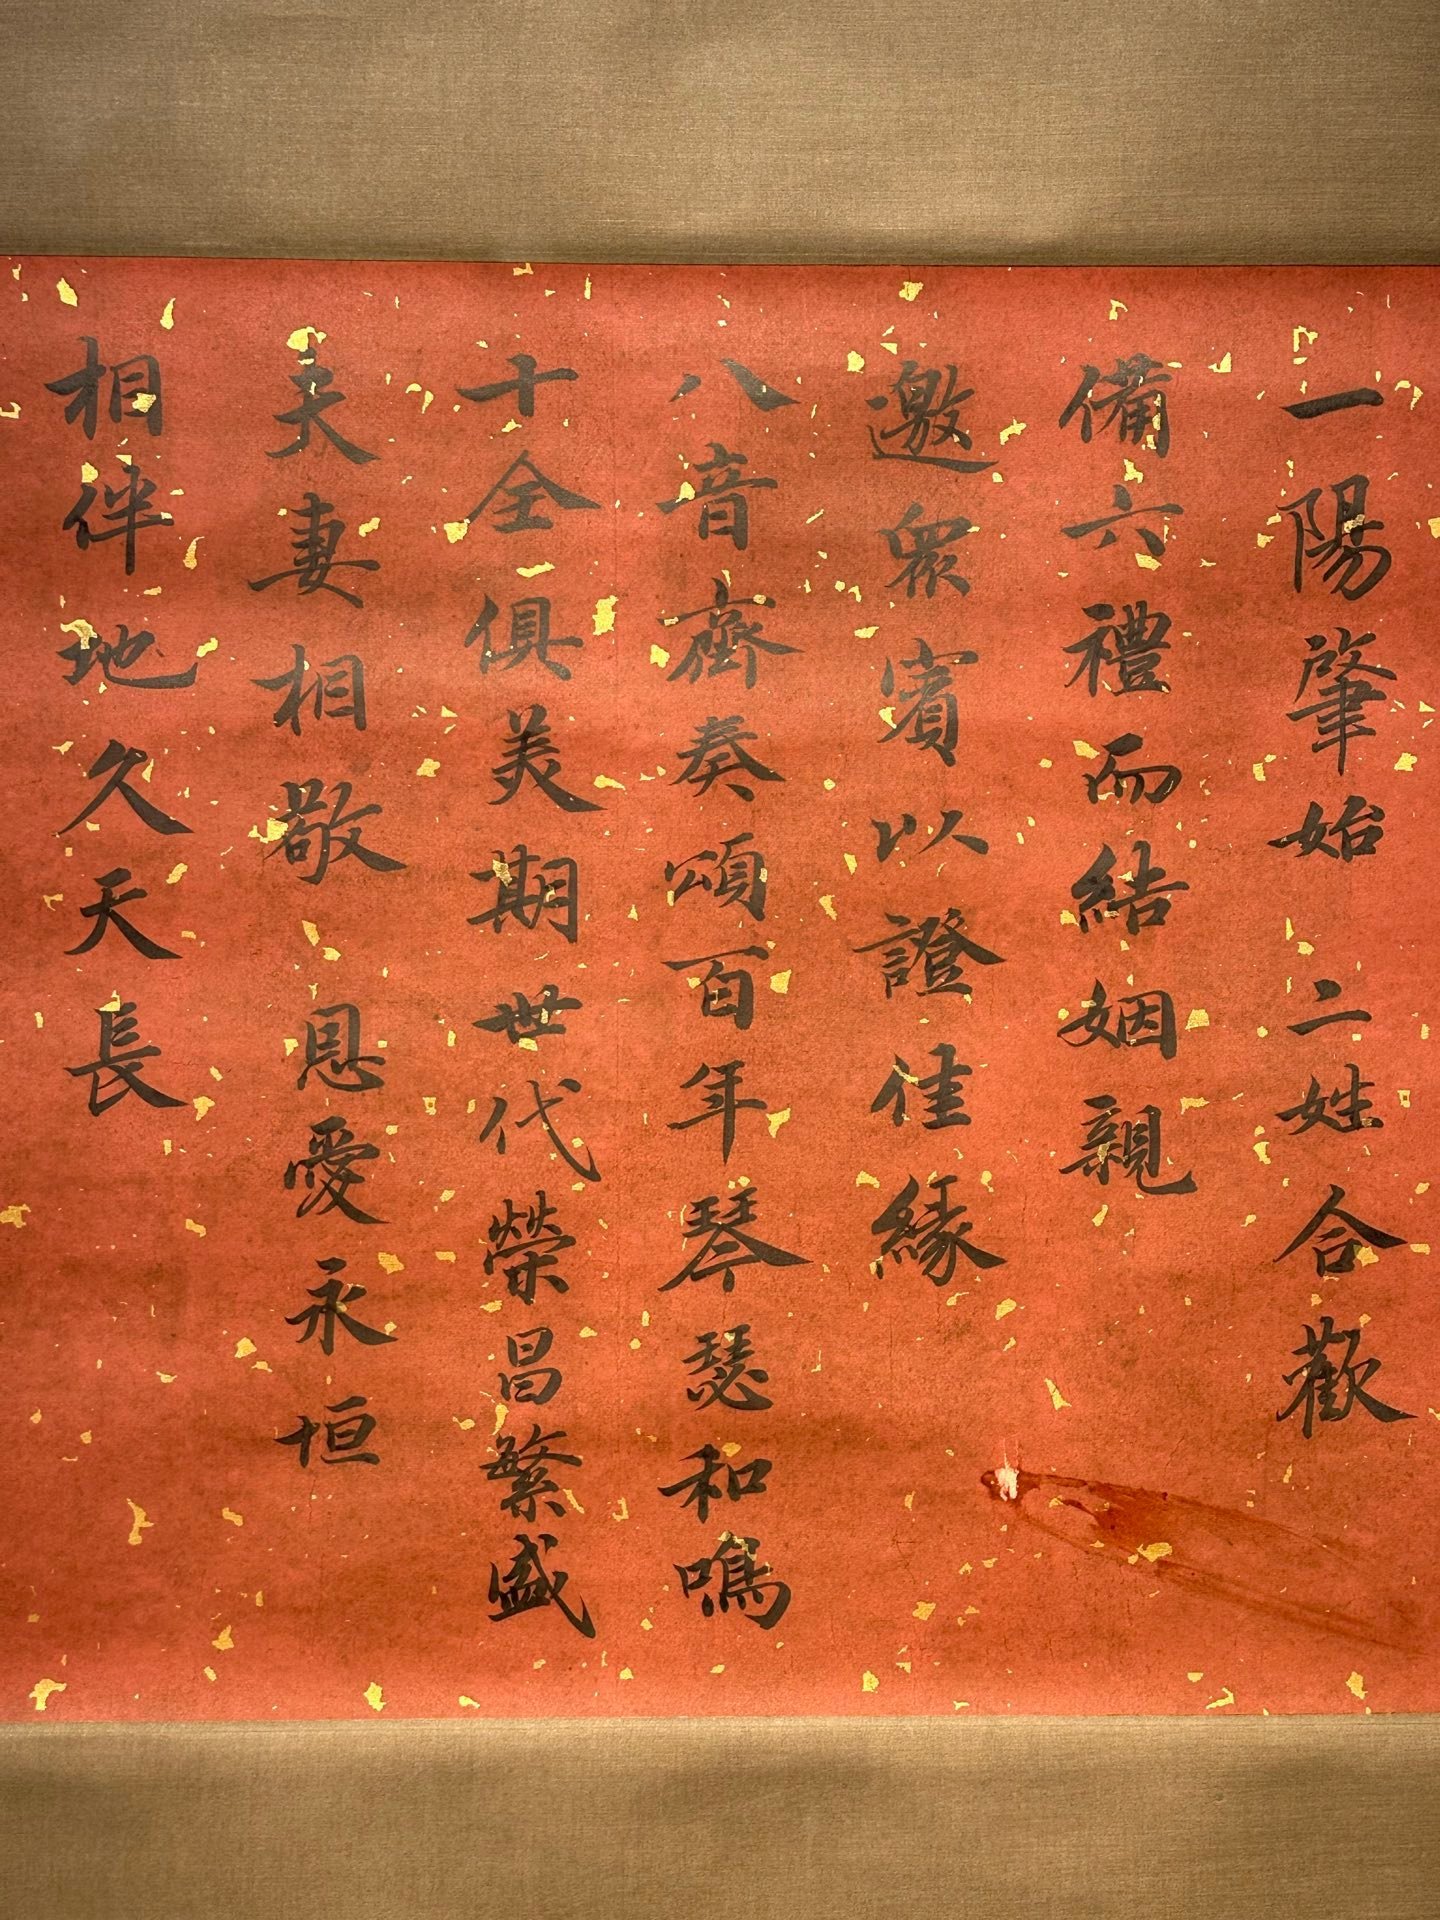 一陽肇始 二姓合歡
備六禮而結姻親
邀眾賓以證佳緣
八音齊奏頌百年琴瑟和鳴
十全俱美期世代榮昌繁盛
夫妻相敬 恩愛永恒
相伴地久天長